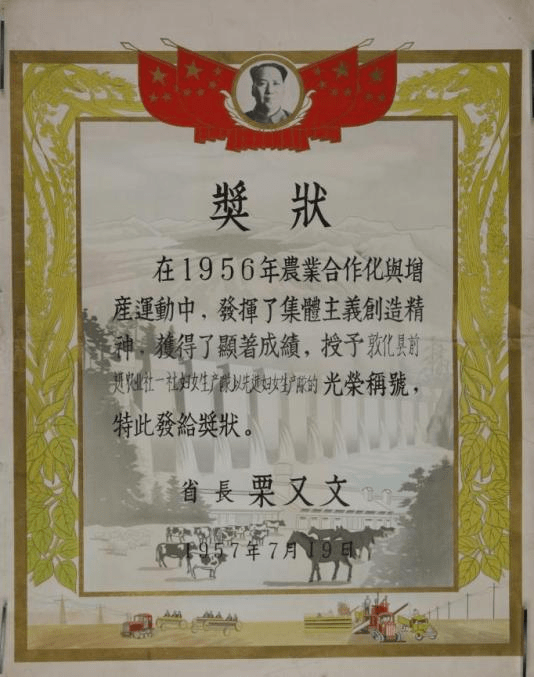 獎狀
在1956年農業合作化與增
産運動中，發揮了集體主義創造精
神，獲得了顯著成績，授予敦化县前
农业社一社妇女生产队以先進妇女生产队的光榮稱號，
特此發給獎狀。
省長 栗又文
1957年7月19日